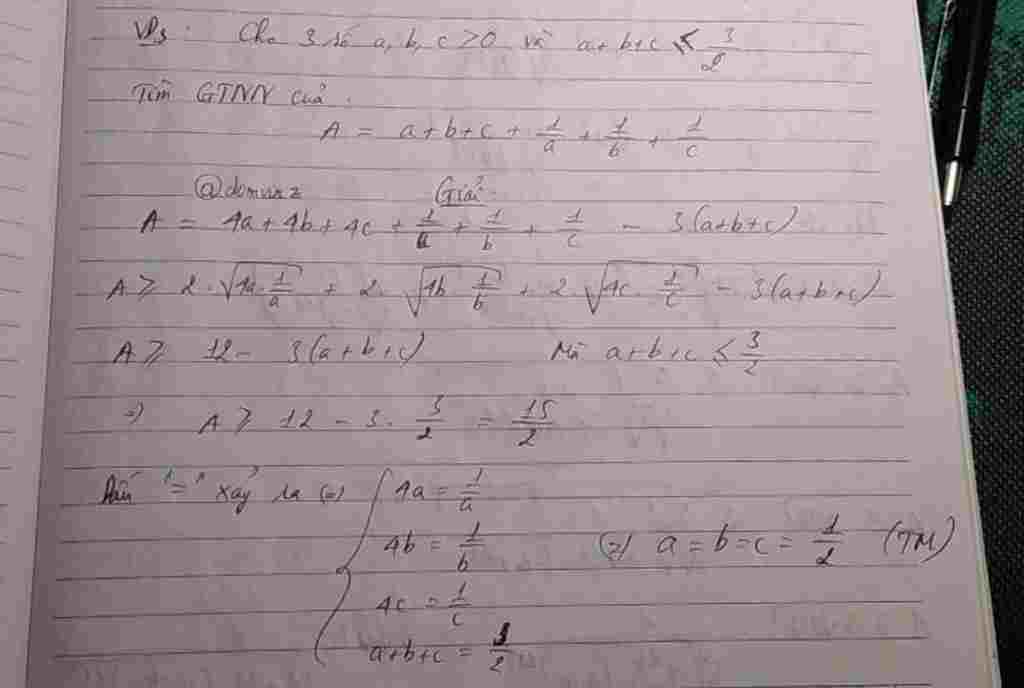 VD3: Cho 3 số a, b, c > 0 và a + b + c ≤ 3/2
Tìm GTNN của:
A = a + b + c + 1/a + 1/b + 1/c
Giải:
A = 4a + 4b + 4c + 1/a + 1/b + 1/c - 3(a+b+c)
A ≥ 2.√(4a.1/a) + 2.√(4b.1/b) + 2.√(4c.1/c) - 3(a+b+c)
A ≥ 12 - 3(a+b+c) Mà a+b+c ≤ 3/2
=) A ≥ 12 - 3. 3/2 = 15/2
Dấu "=" xảy ra (=) { 4a = 1/a
4b = 1/b (=) a = b = c = 1/2 (TM)
4c = 1/c
a+b+c = 3/2